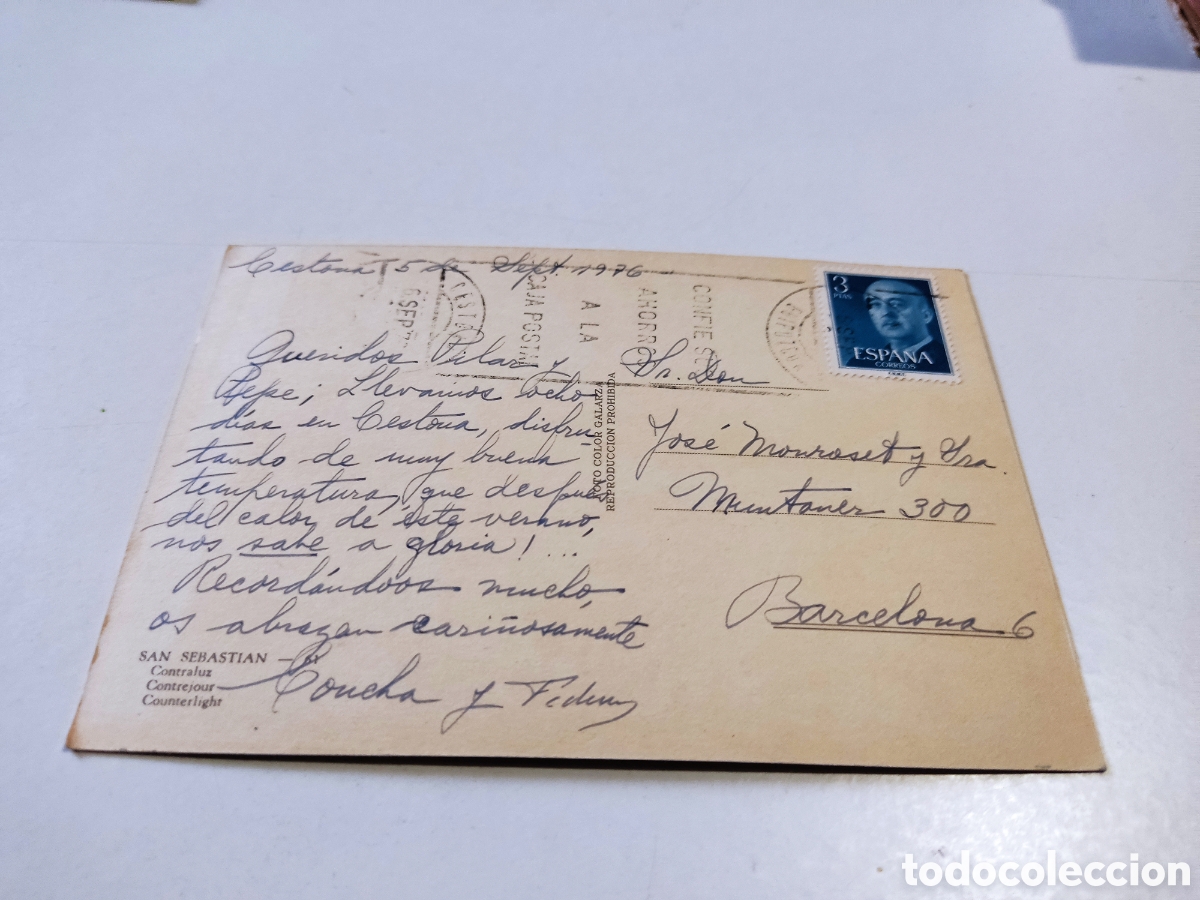 Cestona 5 de Sept. 1976
6 SEP
CESTONA
CAJA POSTAL
A LA
AHORRO
CONFIE SU
3
PTAS
ESPAÑA
CORREOS
Queridos Pilar y
Pepe; Llevamos ocho
días en Cestona, disfru-
tando de muy buena
temperatura, que después
del calor de éste verano,
nos sabe a gloria!...
Recordándoos mucho,
os abrazan cariñosamente
Concha y
SAN SEBASTIAN - 61
Contraluz
Contrejour
Counterlight
FOTO COLOR GALARZA
REPRODUCCION PROHIBIDA
Sr. Don
José Monroset y Sra.
Muntaner 300
Barcelona 6
todocoleccion